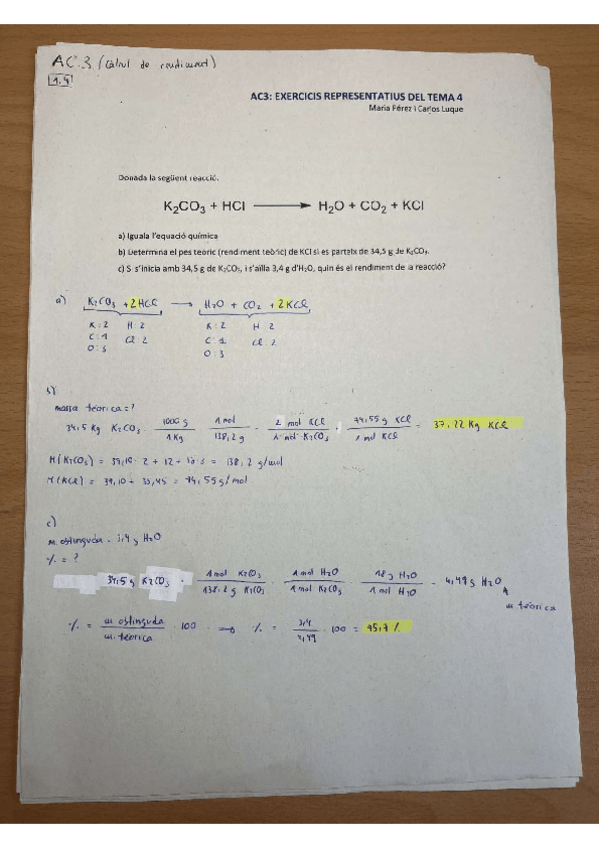 AC.3 (Càlcul de rendiment)
1.4
AC3: EXERCICIS REPRESENTATIUS DEL TEMA 4
Maria Pérez i Carlos Luque
Donada la següent reacció.
K₂CO₃ + HCl ⟶ H₂O + CO₂ + KCl
a) Iguala l'equació química
b) Determina el pes teòric (rendiment teòric) de KCl si es parteix de 34,5 g de K₂CO₃.
c) Si s'inicia amb 34,5 g de K₂CO₃, i s'aïlla 3,4 g d'H₂O, quin és el rendiment de la reacció?
a) K₂CO₃ + 2HCl ⟶ H₂O + CO₂ + 2KCl
K : 2 H : 2 K : 2 H : 2
C : 1 Cl : 2 C : 1 Cl : 2
O : 3 O : 3
b)
massa teòrica = ?
34,5 Kg K₂CO₃ · 1000 g / 1 Kg · 1 mol / 138,2 g · 2 mol KCl / 1 mol K₂CO₃ · 74,55 g KCl / 1 mol KCl = 37,22 Kg KCl
M (K₂CO₃) = 39,10 · 2 + 12 + 16 · 3 = 138,2 g/mol
M (KCl) = 39,10 + 35,45 = 74,55 g/mol
c)
m. obtinguda = 3,4 g H₂O
% = ?
34,5 g K₂CO₃ · 1 mol K₂CO₃ / 138,2 g K₂CO₃ · 1 mol H₂O / 1 mol K₂CO₃ · 18 g H₂O / 1 mol H₂O = 4,49 g H₂O
m. teòrica
% = m. obtinguda / m. teòrica · 100 ⟶ % = 3,4 / 4,49 · 100 = 75,7 %